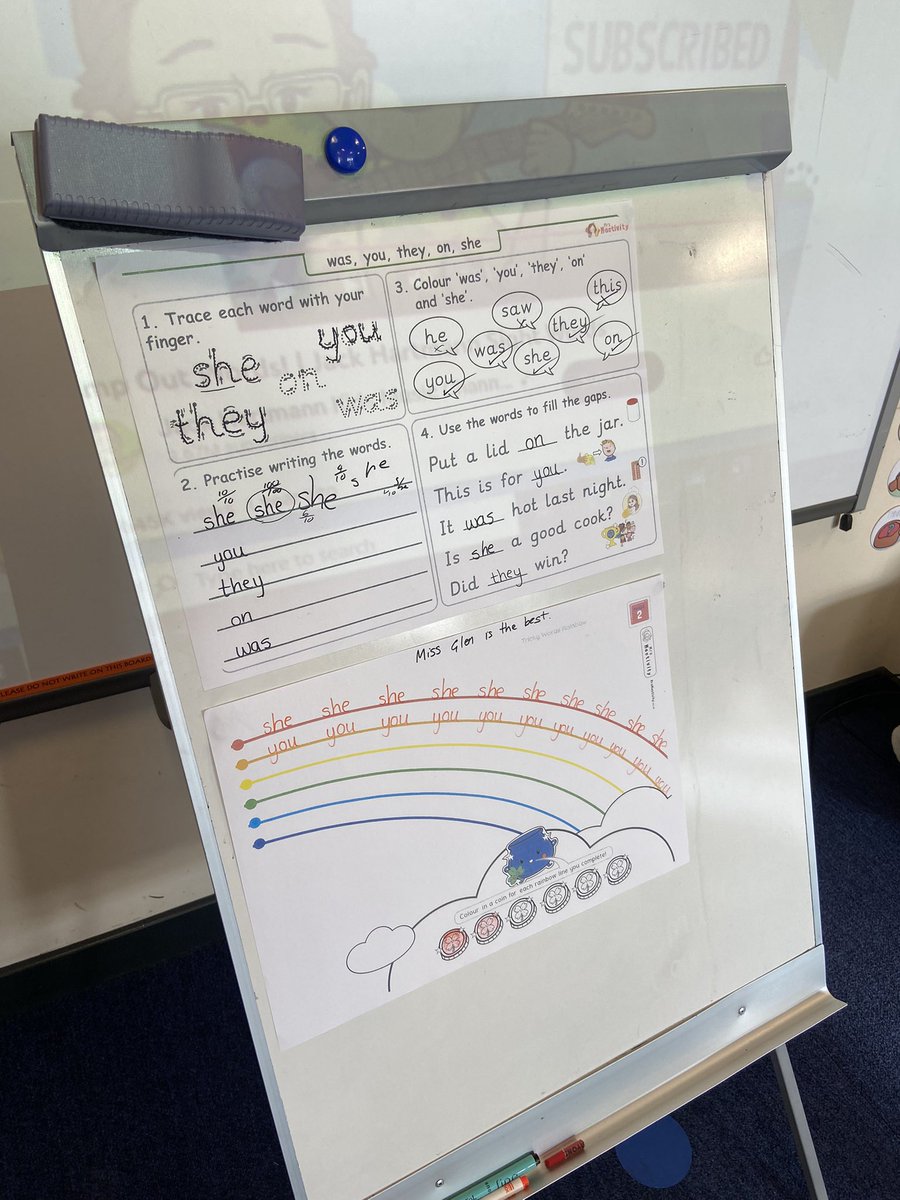 SUBSCRIBED
was, you, they, on, she
1. Trace each word with your
finger.
you
she
on
they
was
2. Practise writing the words.
she she she she
you
they
on
was
3. Colour 'was', 'you', 'they', 'on'
and 'she'.
this
saw
he
they
was
on
she
you
4. Use the words to fill the gaps.
Put a lid on the jar.
This is for you.
It was hot last night.
Is she a good cook?
Did they win?
PLEASE DO NOT WRITE ON THIS BOARD
Miss Glen is the best.
Tricky Words Rainbow
2
she she she she she she she she she she
you you you you you you you you you you you
Colour in a coin for each rainbow line you complete!